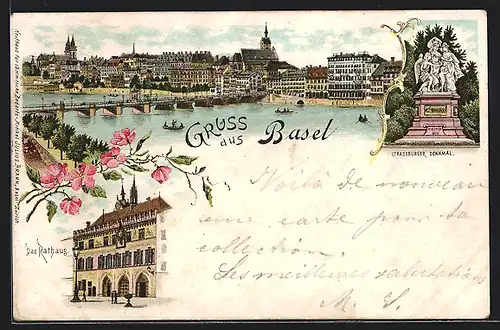 GRUSS
aus Basel
STRASSBURGER DENKMAL.
Das Rathaus.
Voilà de nouveau
une carte pour ta
collection.
Les meilleures salutations
M. S.